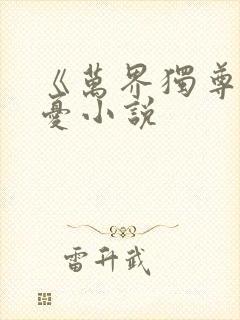 《萬界獨尊
憂小說
雷升武